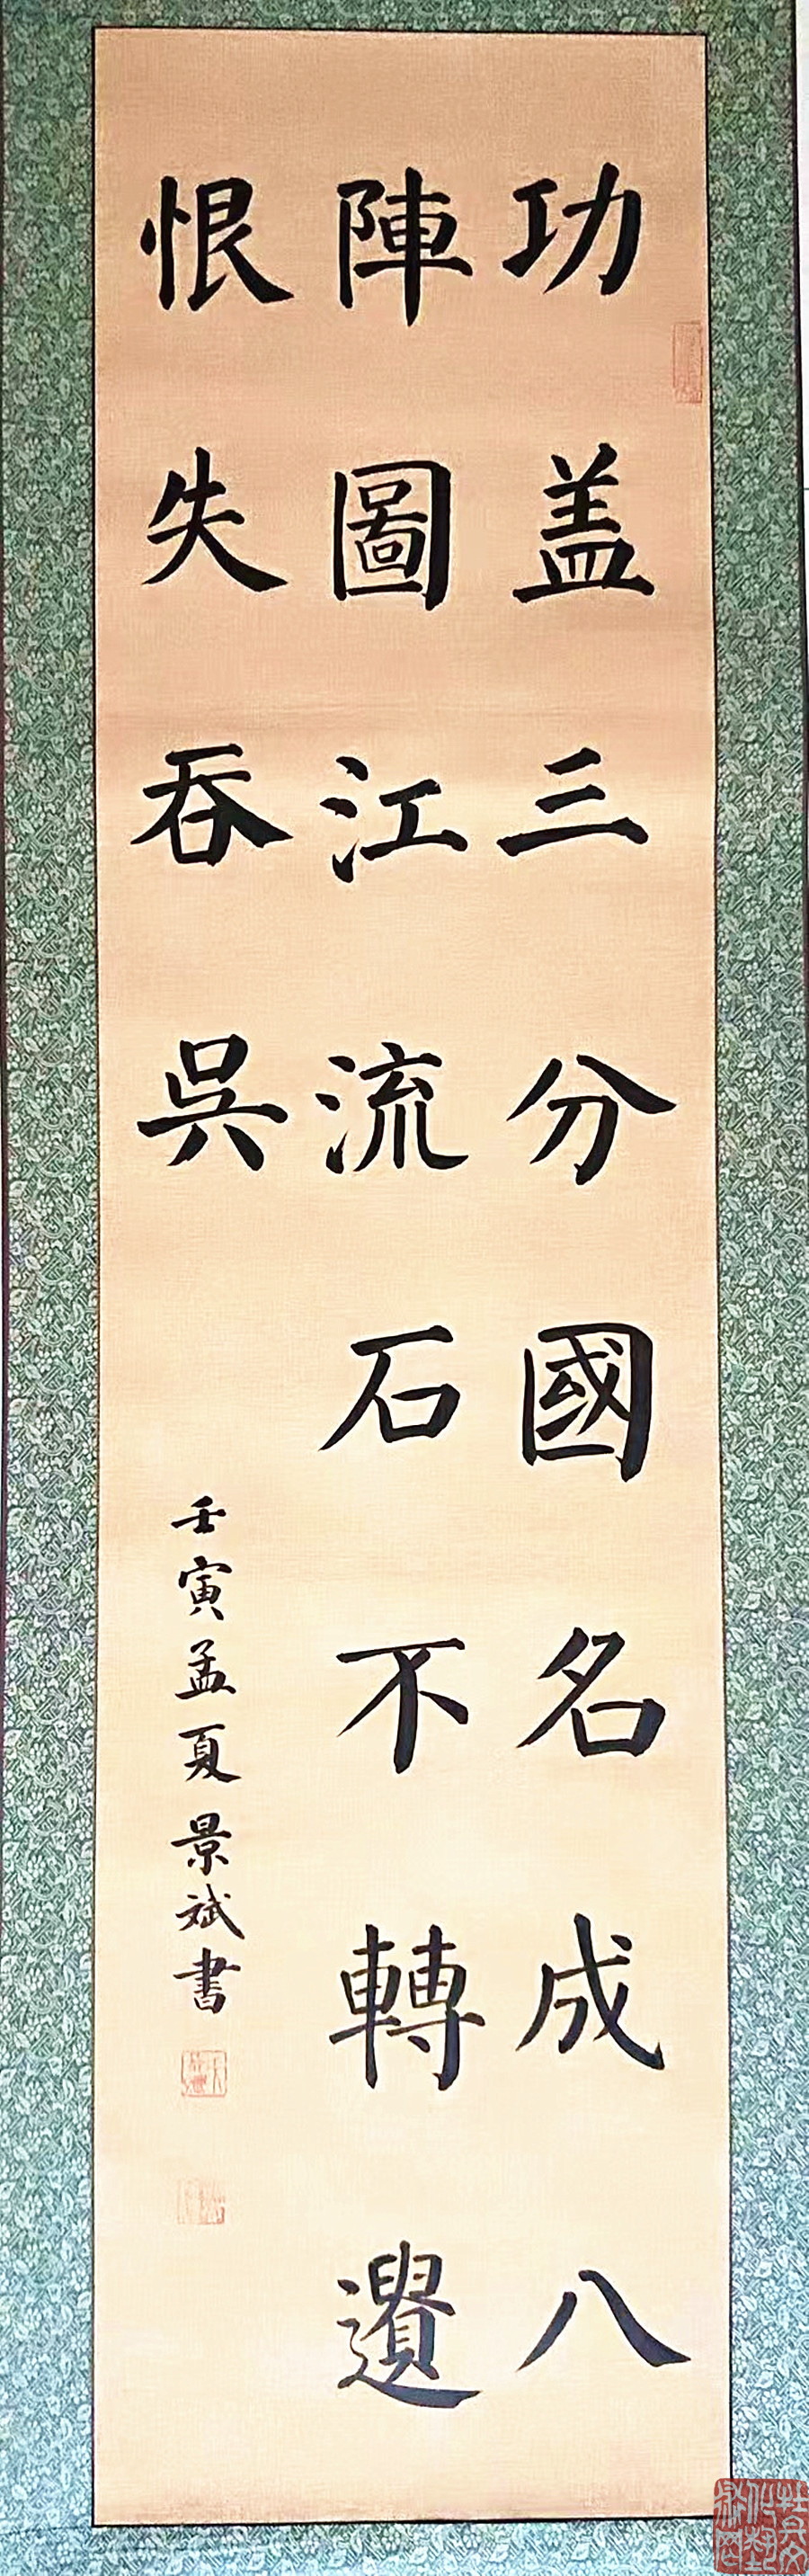 功盖三分國名成八
陣圖江流石不轉遺
恨失吞吳
壬寅孟夏景斌書